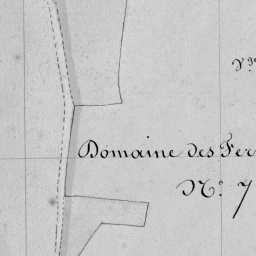 Domaine des Fer
N.° 7